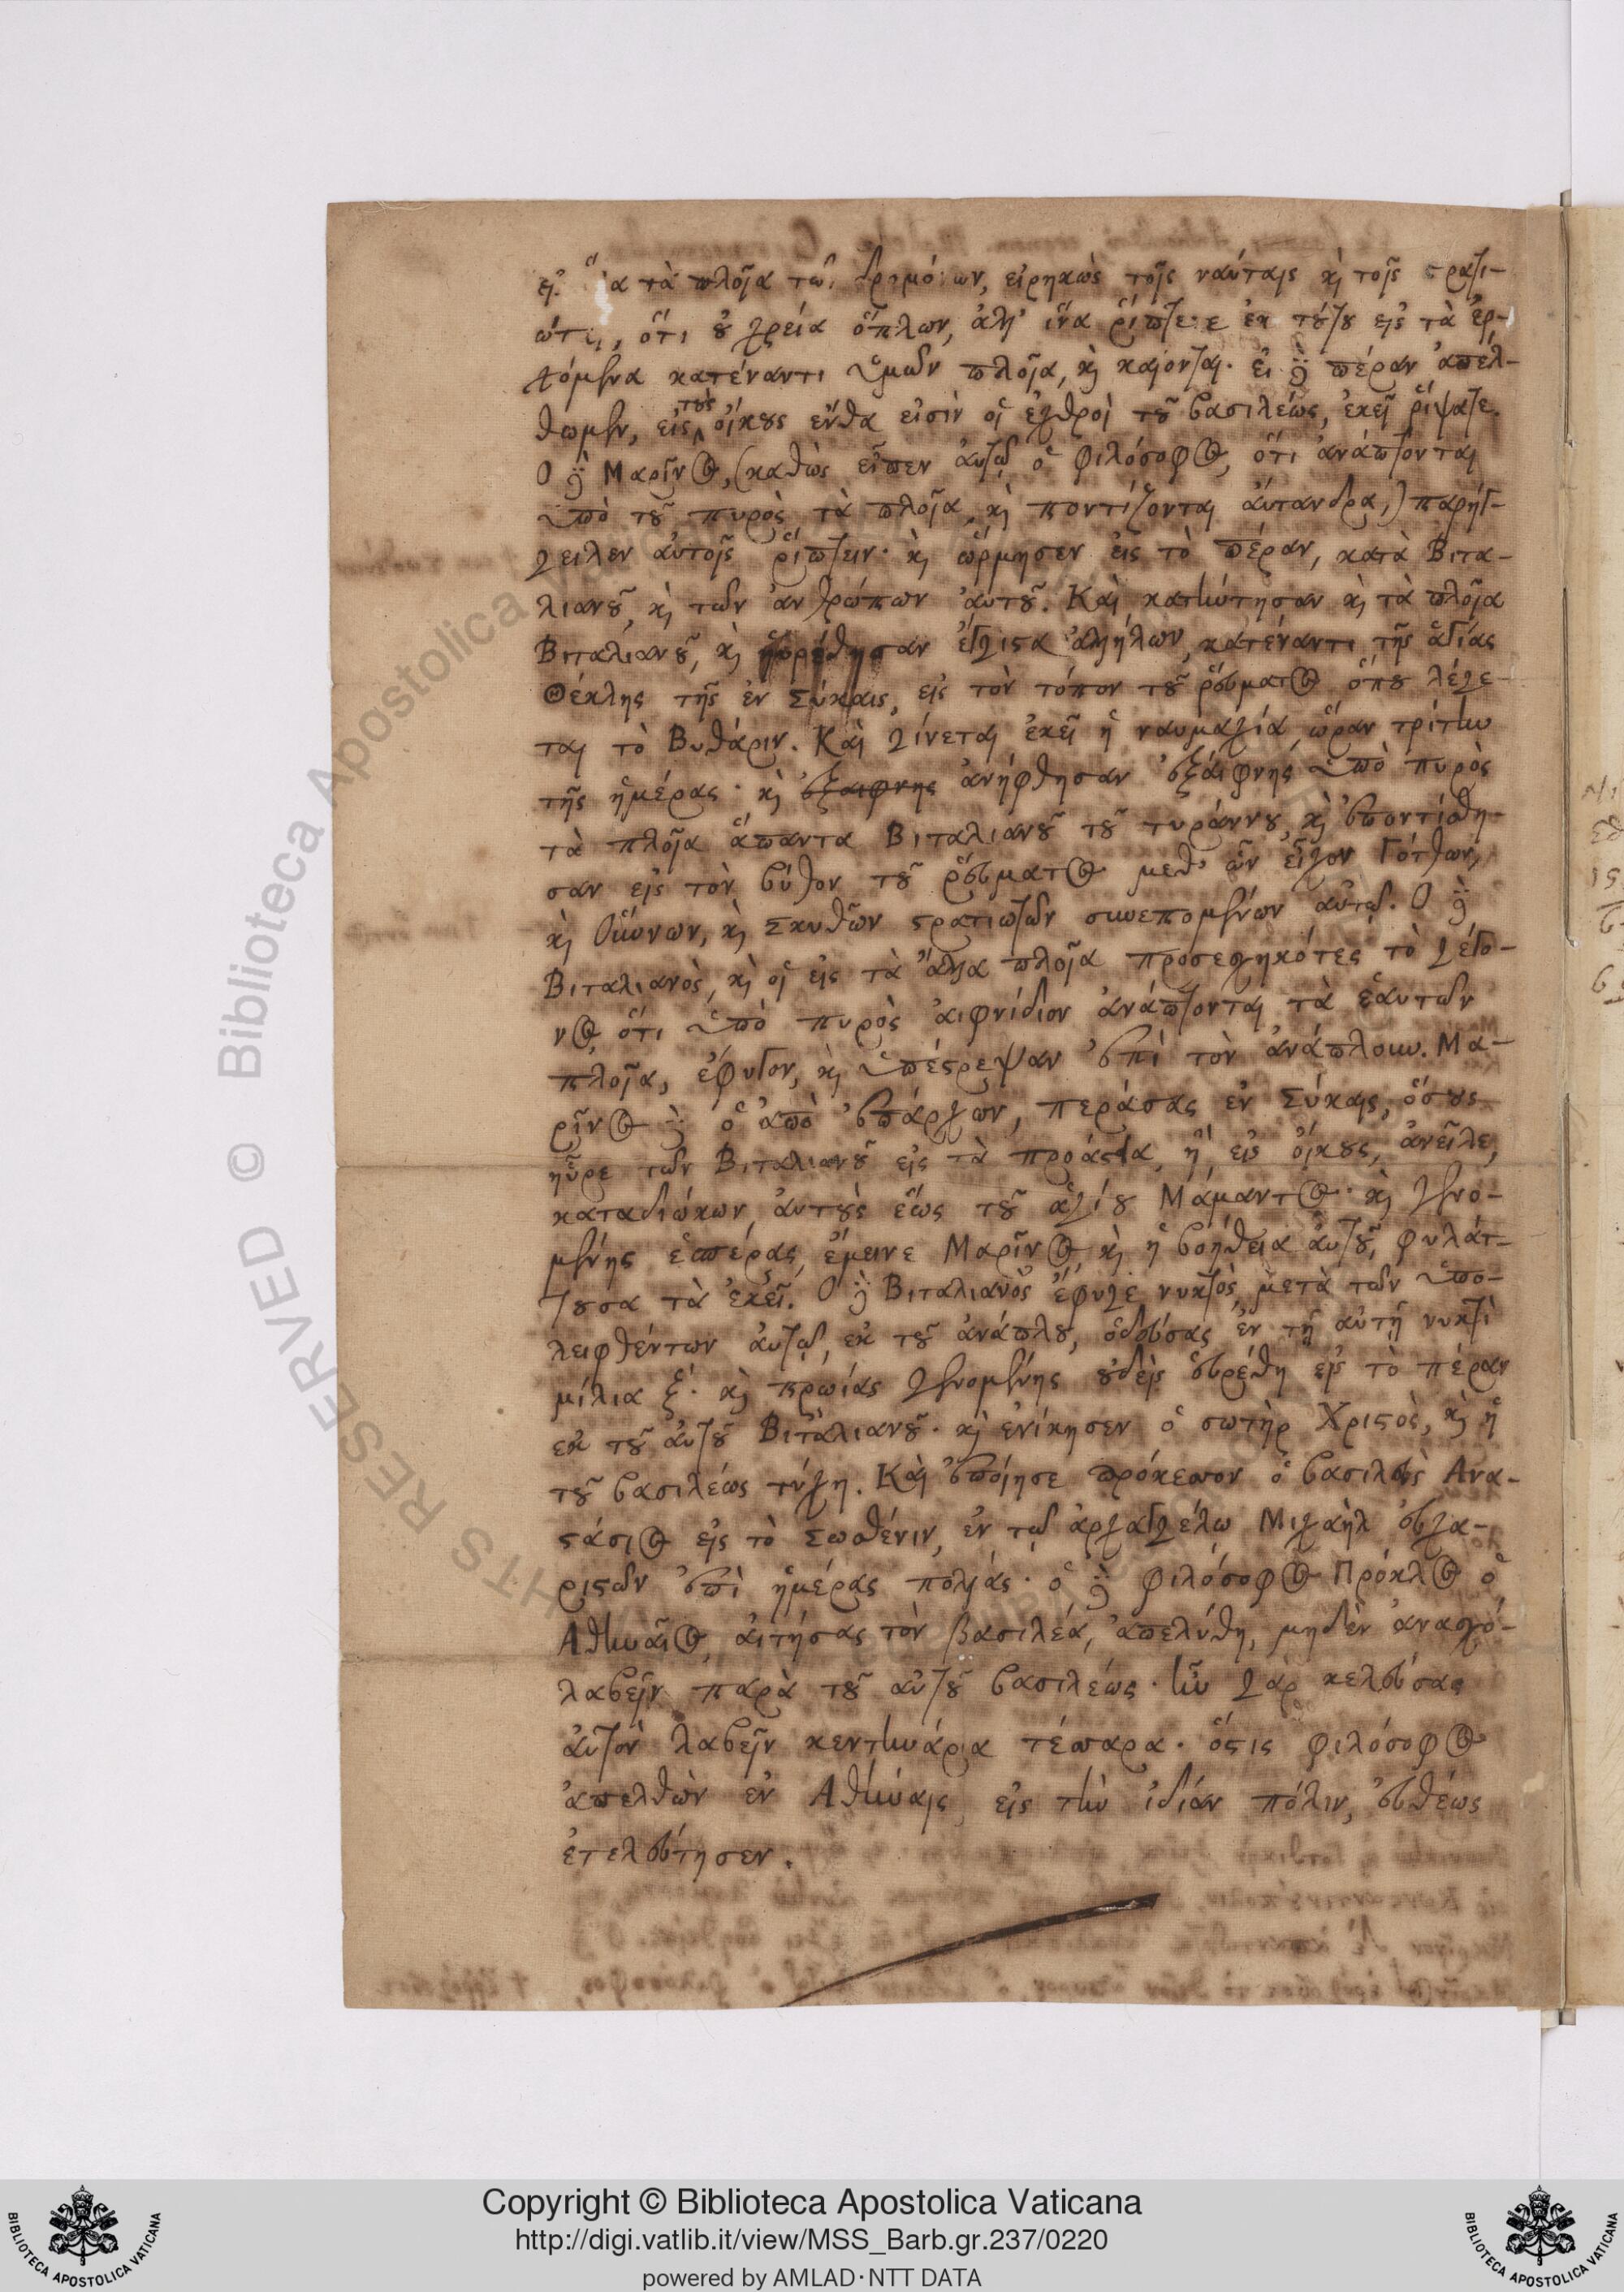 τὰ πλοῖα τῶν δρομόνων, εἰρηκὼς τοῖς ναύταις καὶ τοῖς στρατι-
ώταις, ὅτι οὐ χρεία ὅπλων, ἀλλ' ἵνα ῥίπτετε ἐκ τούτου εἰς τὰ ἐρ-
χόμενα κατέναντι ὑμῶν πλοῖα, καὶ καίονται. εἰ δὲ πέραν ἀπέλ-
θωμεν, εἰς τοὺς οἴκους ἔνθα εἰσὶν οἱ ἐχθροὶ τοῦ βασιλέως, ἐκεῖ ῥίψατε.
Ο δὲ Μαρῖνος, (καθὼς εἶπεν αὐτῷ ὁ φιλόσοφος, ὅτι ἀνάπτονται
ὑπὸ τοῦ πυρὸς τὰ πλοῖα, καὶ ποντίζονται αὔτανδρα,) παρήγ-
γειλεν αὐτοῖς ῥίπτειν· καὶ ὥρμησεν εἰς τὸ πέραν, κατὰ Βιτα-
λιανοῦ, καὶ τῶν ἀνθρώπων αὐτοῦ. Καὶ κατήντησαν καὶ τὰ πλοῖα
Βιταλιανοῦ, καὶ ηὑρέθησαν ἔγγιστα ἀλλήλων, κατέναντι τῆς ἁγίας
Θέκλης τῆς ἐν Σύκαις, εἰς τὸν τόπον τοῦ ῥεύματος ὅπου λέγε-
ται τὸ Βυθάριν. Καὶ γίνεται ἐκεῖ ἡ ναυμαχία, ὥραν τρίτην
τῆς ἡμέρας· καὶ ἐξαιφνης ἀνήφθησαν ἐξαίφνης ὑπὸ πυρὸς
τὰ πλοῖα ἅπαντα Βιταλιανοῦ τοῦ τυράννου, καὶ ἐποντίσθη-
σαν εἰς τὸν βύθον τοῦ ῥεύματος μεθ' ὧν εἶχον Γότθων,
καὶ Οὕνων, καὶ Σκυθῶν στρατιωτῶν συνεπομένων αὐτῷ. Ο δὲ
Βιταλιανὸς, καὶ οἱ εἰς τὰ ἄλλα πλοῖα προσεσχηκότες τὸ γεγο-
νὸς, ὅτι ὑπὸ πυρὸς αἰφνίδιον ἀνάπτονται τὰ ἑαυτῶν
πλοῖα, ἔφυγον, καὶ ὑπέστρεψαν ἐπὶ τὸν ἀνάπλουν. Μα-
ρῖνος δὲ ὁ ἀπὸ ἐπάρχων, περάσας ἐν Σύκαις, ὅσους
ηὗρε τῶν Βιταλιανοῦ εἰς τὰ προάστεια, ἢ εἰς οἴκους, ἀνεῖλε,
καταδιώκων αὐτοὺς ἕως τοῦ ἁγίου Μάμαντος· καὶ γενο-
μένης ἑσπέρας, ἔμεινε Μαρῖνος καὶ ἡ βοήθεια αὐτοῦ, φυλάτ-
τουσα τὰ ἐκεῖ. Ο δὲ Βιταλιανὸς ἔφυγε νυκτὸς μετὰ τῶν ὑπο-
λειφθέντων αὐτῷ, ἐκ τοῦ ἀνάπλου, ὁδεύσας ἐν τῇ αὐτῇ νυκτὶ
μίλια ξ'· καὶ πρωίας γενομένης οὐδεὶς εὑρέθη εἰς τὸ πέραν
ἐκ τοῦ αὐτοῦ Βιταλιανοῦ· καὶ ἐνίκησεν ὁ σωτὴρ Χριστὸς, καὶ ἡ
τοῦ βασιλέως τύχη. Καὶ ἐποίησε πρόκενσον ὁ βασιλεὺς Ανα-
στάσιος εἰς τὸ Σωσθένιν, ἐν τῷ ἀρχαγγέλῳ Μιχαὴλ εὐχα-
ριστῶν ἐπὶ ἡμέρας πολλάς· ὁ δὲ φιλόσοφος Πρόκλος ὁ
Αθηναῖος, αἰτήσας τὸν βασιλέα, ἀπελύθη, μηδὲν ἀνασχό-
λαβεῖν παρὰ τοῦ αὐτοῦ βασιλέως· ἦν γὰρ κελεύσας
αὐτὸν λαβεῖν κεντηνάρια τέσσαρα· ὅστις φιλόσοφος
ἀπελθὼν ἐν Αθήναις, εἰς τὴν ἰδίαν πόλιν, εὐθέως
ἐτελεύτησεν.
© Biblioteca Apostolica Vaticana
RIGHTS RESERVED
Copyright © Biblioteca Apostolica Vaticana
http://digi.vatlib.it/view/MSS_Barb.gr.237/0220
powered by AMLAD·NTT DATA
BIBLIOTECA APOSTOLICA VATICANA
BIBLIOTECA APOSTOLICA VATICANA